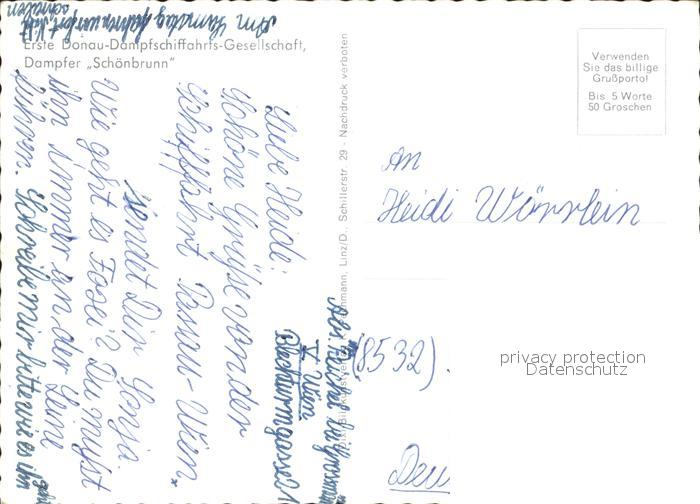 Erste Donau-Dampfschiffahrts-Gesellschaft,
Dampfer „Schönbrunn"
Liebe Heidi!
Schöne Grüße von der
Schifffahrt Passau-Wien
sendet Dir Sonja.
Wie geht es ? Du mußt
ihn immer an der Leine
führen. Schreibe mir bitte wie es ihm
geht
Am Samstag fahren wir fort
V. Wien
Linz/D., Schillerstr. 29 - Nachdruck verboten
Verwenden
Sie das billige
Grußporto!
Bis 5 Worte
50 Groschen
An
Heidi Wörrlein
(8532)
privacy protection
Datenschutz
Deu